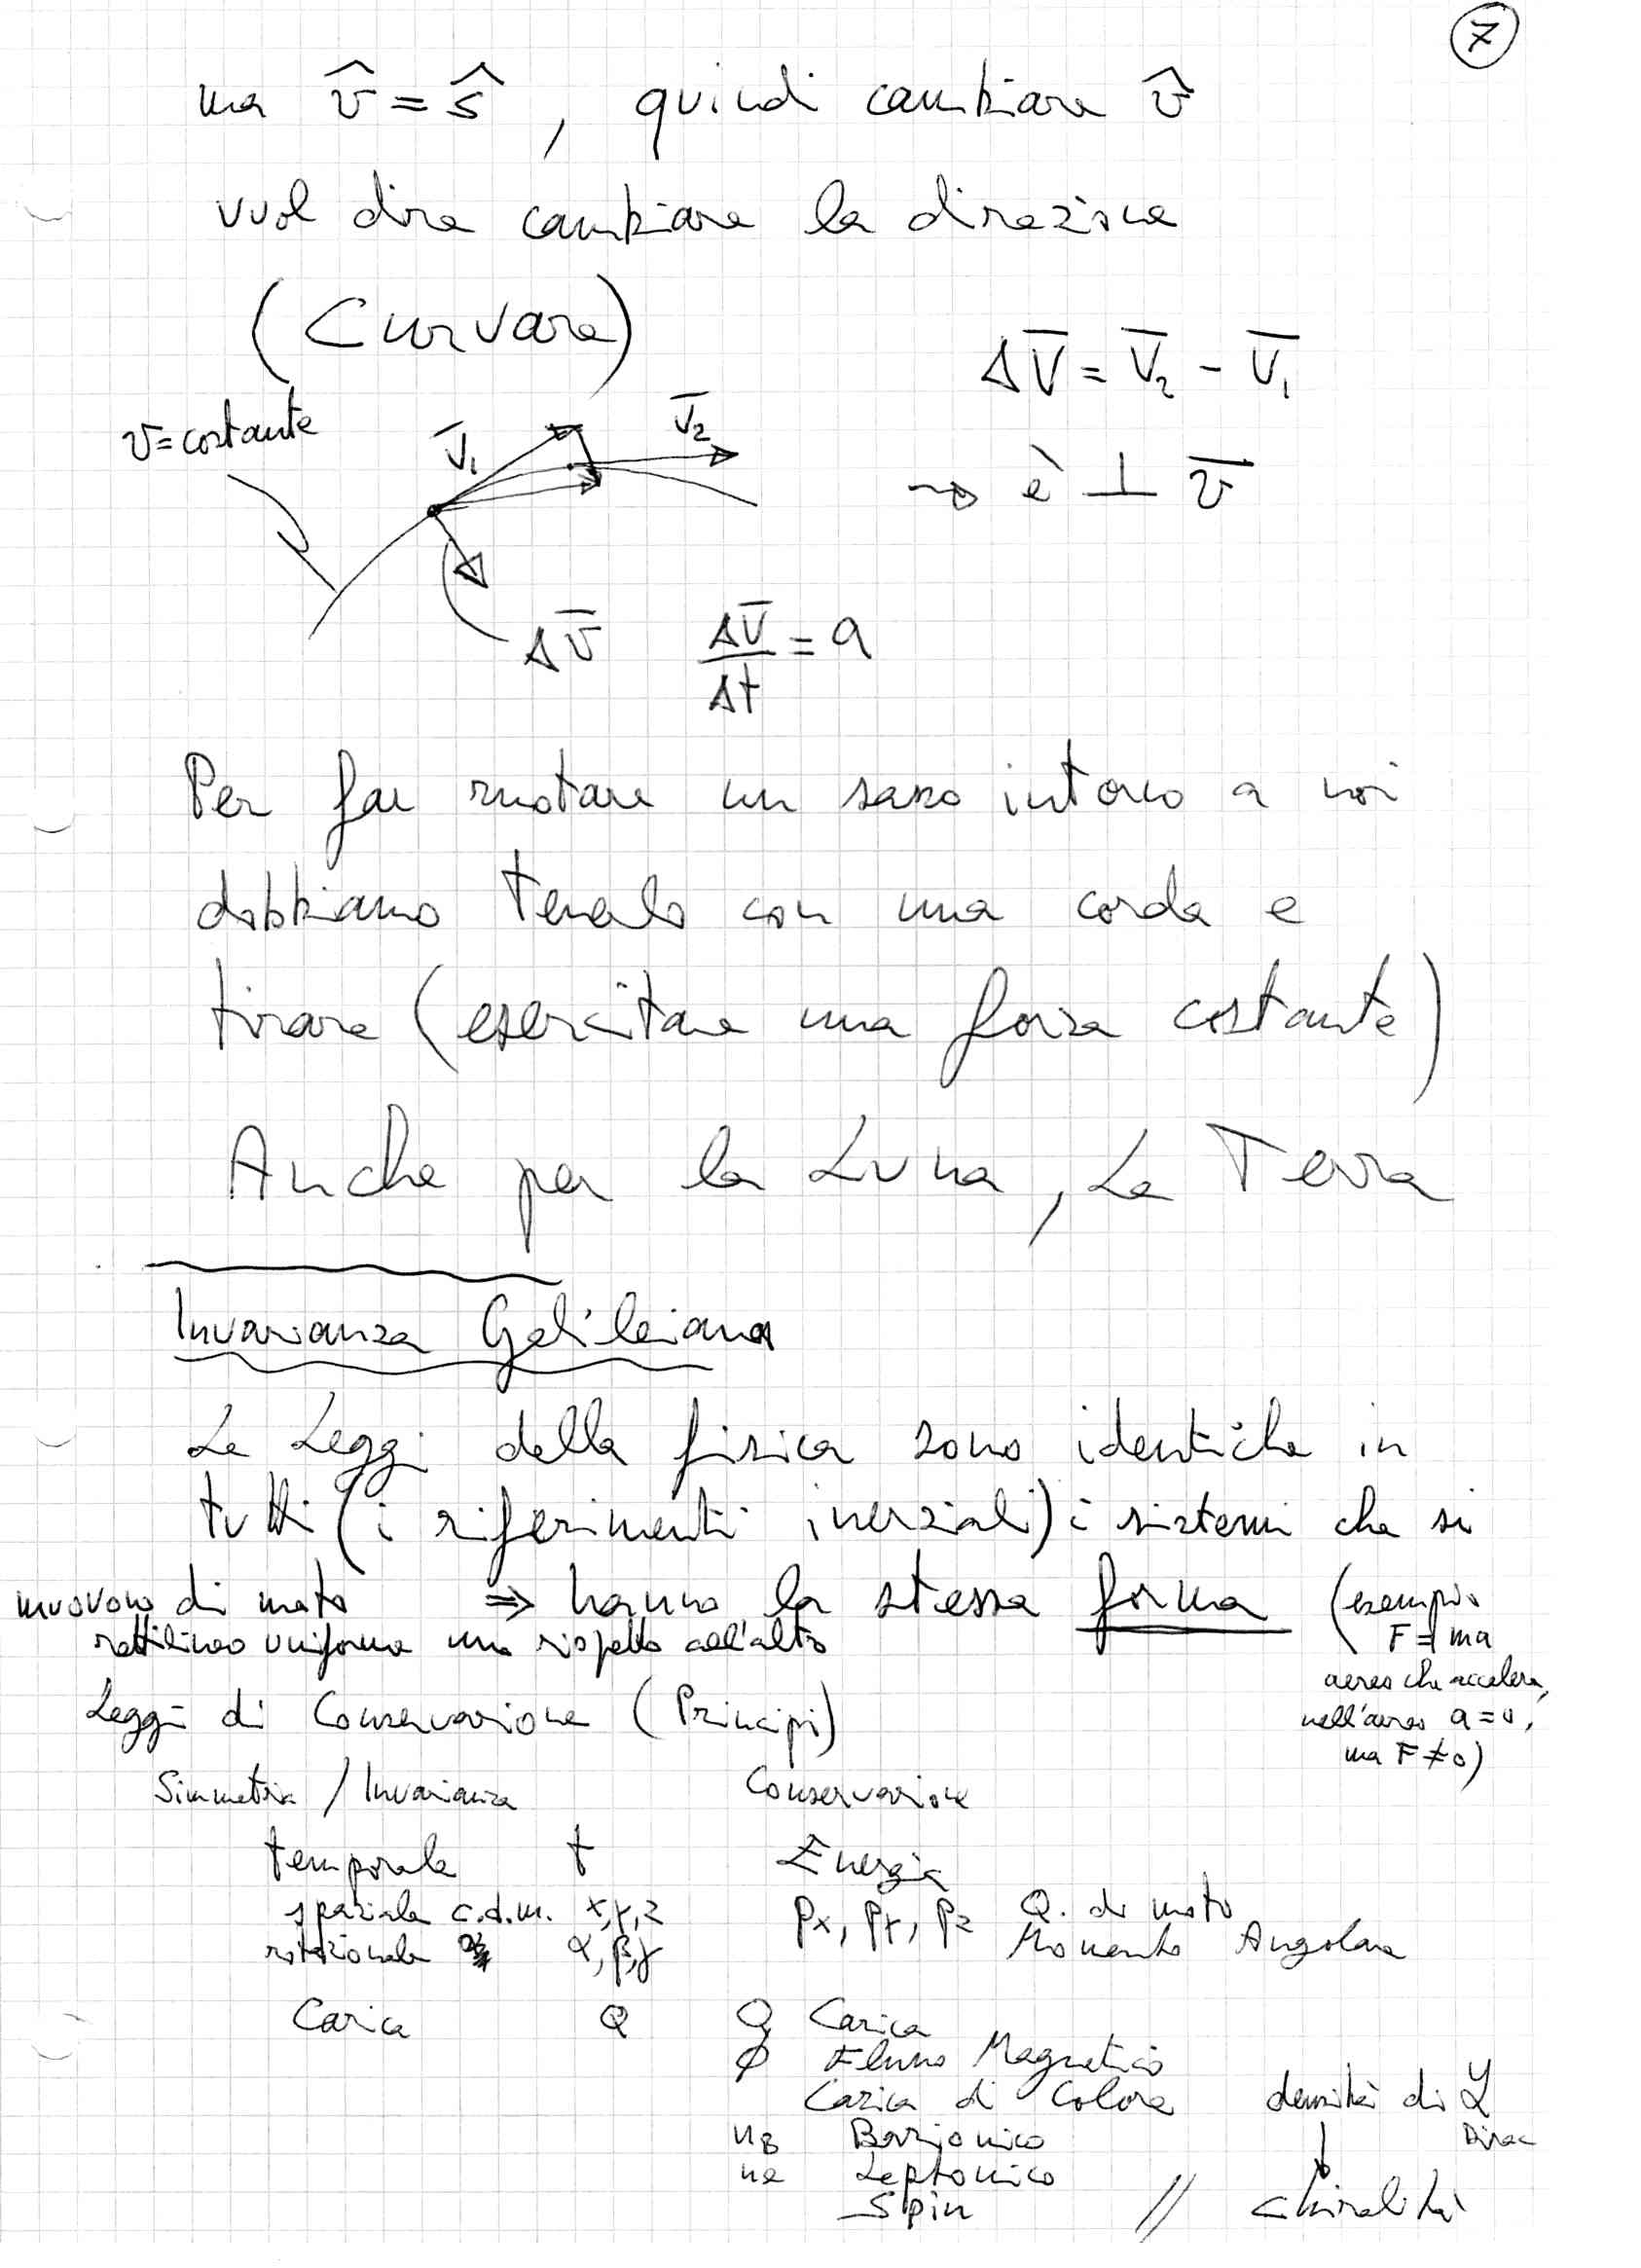 7
ma v̂ = ŝ , quindi cambiare v̂
vuol dire cambiare la direzione
(Curvare)
ΔV̅ = V̅₂ - V̅₁
v = costante
V̅₁
V̅₂
⇝ è ⊥ v̅
Δv̅
ΔV̅/Δt = a
Per far ruotare un sasso intorno a noi
dobbiamo tenerlo con una corda e
tirare (esercitare una forza costante)
Anche per la Luna, La Terra
Invarianza Galileiana
Le Leggi della fisica sono identiche in
tutti (i riferimenti inerziali) i sistemi che si
muovono di moto ⇒ hanno la stessa forma (esempio
rettilineo uniforme uno rispetto all'altro
F = ma
aereo che accelera,
nell'aereo a = 0,
ma F ≠ 0)
Leggi di Conservazione (Principi)
Simmetria / Invarianza Conservazione
temporale t Energia
spaziale c.d.m. x,y,z px, py, pz Q. di moto
rotazionale α, β, γ Momento Angolare
Carica Q Q Carica
ϕ Flusso Magnetico
Carica di Colore densità di ℒ
Dirac
n_B Barionico ↓
ne Leptonico
Spin // chiralità